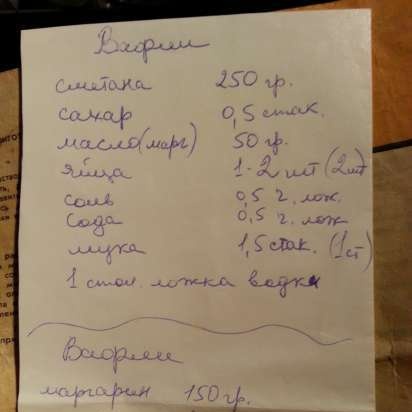 Вафли
сметана 250 гр.
сахар 0,5 стак.
масло(марг) 50 гр.
яйца 1-2 шт (2шт)
соль 0,5 ч. лож.
сода 0,5 ч. лож
мука 1,5 стак. (1ст)
1 стол. ложка водки
Вафли
маргарин 150 гр.